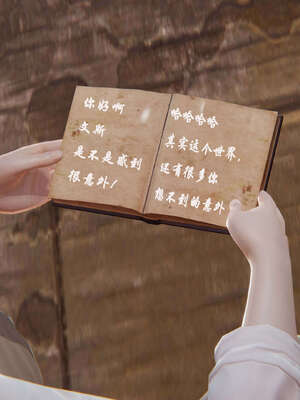 你好啊
文斯
是不是感到
很意外！
哈哈哈哈
其实这个世界，
还有很多你
想不到的意外